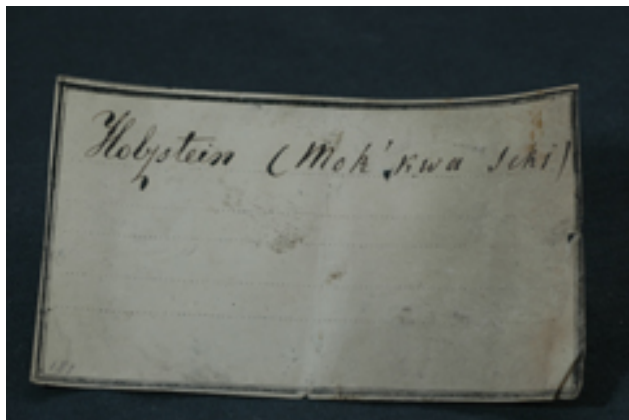 Holzstein (Moh' kwa seki)